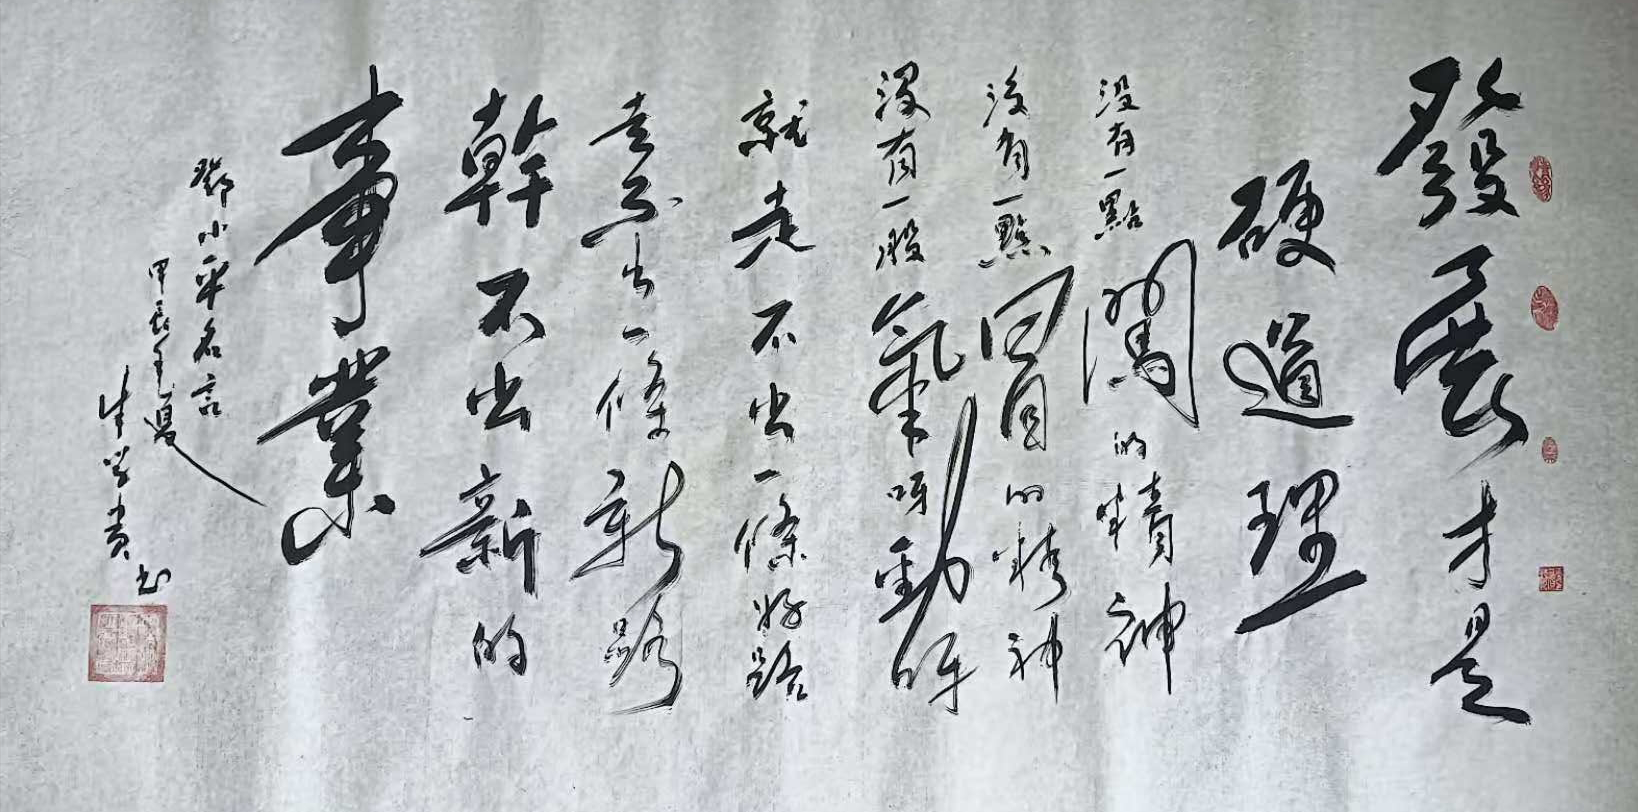 發展才是
硬道理
没有一點闖的精神
没有一點冒的精神
沒有一股氣呀勁呀
就走不出一條好路
走不出一條新路
幹不出新的
事業
鄧小平名言
甲辰年夏
朱学贵书